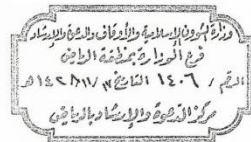 وزارة الشؤون الإسلامية والأوقاف والدعوة والإرشاد
فرع الوزارة بمنطقة الرياض
الرقم / ١٤٠٦ التاريخ ١٤٢٨/١١/ هـ
مركز الدعوة والإرشاد بالرياض